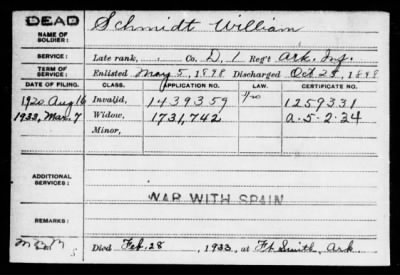 DEAD
NAME OF SOLDIER: Schmidt William
SERVICE: Late rank, . Co. D, 1 Reg't Ark. Inf.
TERM OF SERVICE: Enlisted May 5, 1898 Discharged Oct 25, 1898
DATE OF FILING. CLASS. APPLICATION NO. LAW. CERTIFICATE NO.
1920 Aug 16 Invalid, 1439359 1259331
1933, Mar. 7 Widow, 1731,742 a-5-2-34
Minor,
ADDITIONAL SERVICES:
WAR WITH SPAIN
REMARKS:
Died Feb. 28, 1933, at Ft. Smith, Ark.